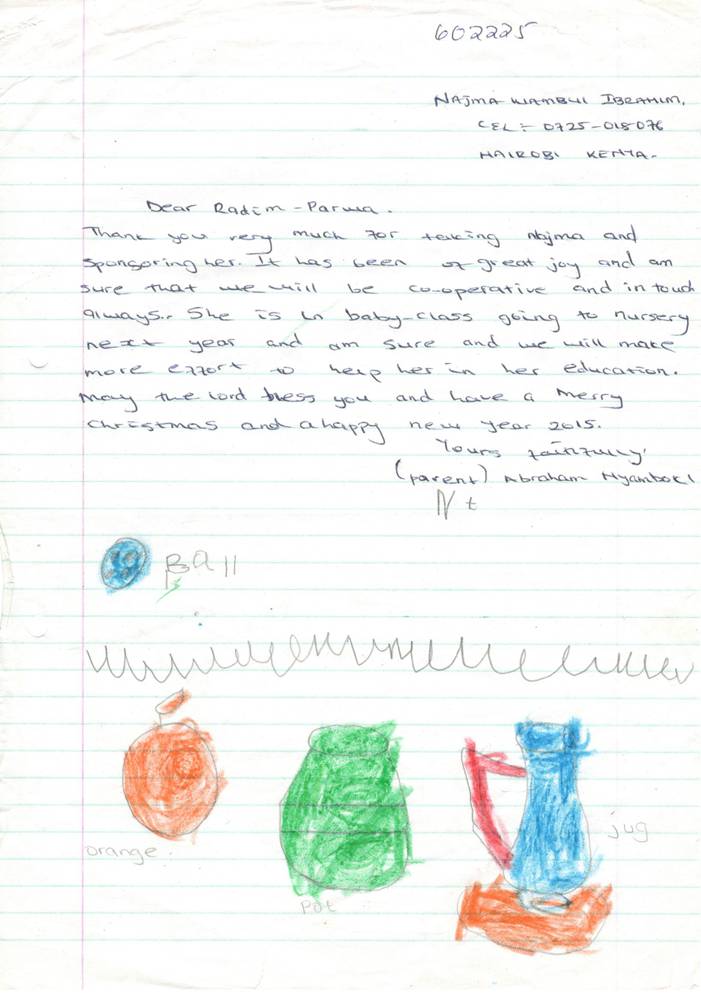 602225
NAJMA WAMBUI IBRAHIM.
CEL:- 0725-018076
NAIROBI KENYA.
Dear Radim - Parma.
Thank you very much for taking Najma and
sponsoring her. It has been of great joy and am
sure that we will be co-operative and in touch
always.. She is in baby-class going to nursery
next year and am sure and we will make
more effort to help her in her education.
May the lord bless you and have a merry
Christmas and a happy new year 2015.
Yours faithfully
(parent) Abraham Nyamboki
N t
Ball
orange.
Pot
jug